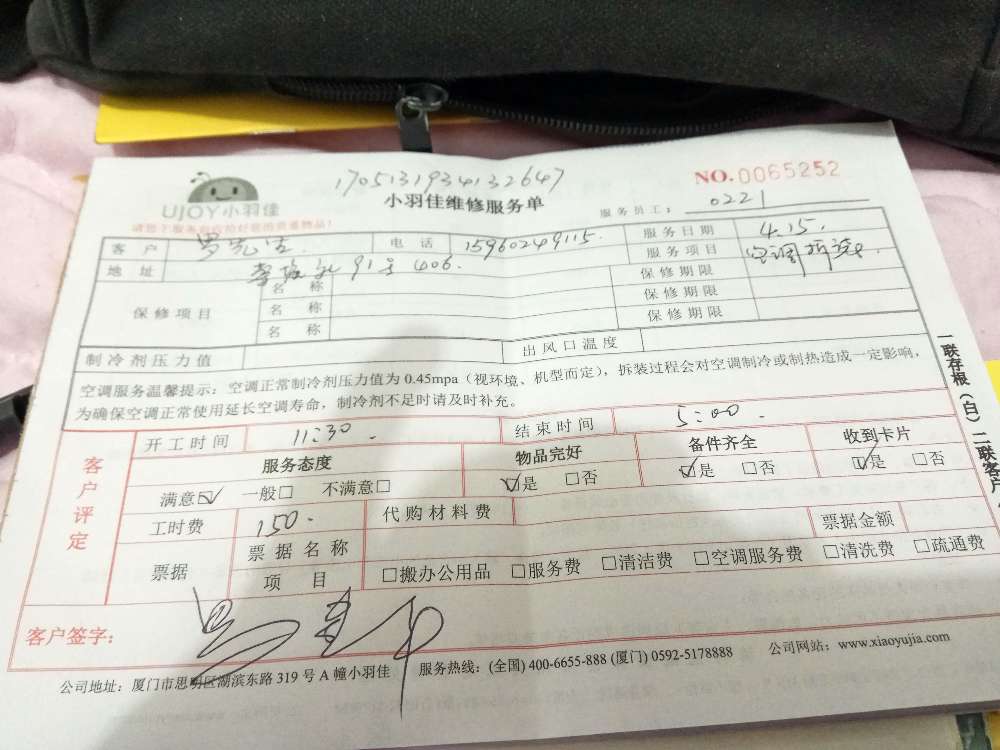 1705131934132647
NO.0065252
UJOY小羽佳
小羽佳维修服务单
服务员工: 0221
客户
电话 15960249115.
服务日期 4.15.
地址 91号406.
服务项目 空调拆装
保修项目
名称
保修期限
名称
保修期限
名称
保修期限
制冷剂压力值
出风口温度
空调服务温馨提示：空调正常制冷剂压力值为0.45mpa（视环境、机型而定），拆装过程会对空调制冷或制热造成一定影响，
为确保空调正常使用延长空调寿命，制冷剂不足时请及时补充。
客户评定
开工时间 11:30.
结束时间 5:00.
服务态度
物品完好
备件齐全
收到卡片
满意☑ 一般□ 不满意□
☑是 □否
☑是 □否
☑是 □否
工时费 150.
代购材料费
票据金额
票据
票据名称
项目
□搬办公用品 □服务费 □清洁费 □空调服务费 □清洗费 □疏通费
客户签字:
公司地址: 厦门市思明区湖滨东路319号A幢小羽佳 服务热线: (全国) 400-6655-888 (厦门) 0592-5178888 公司网站: www.xiaoyujia.com
一联存根（白）二联客户